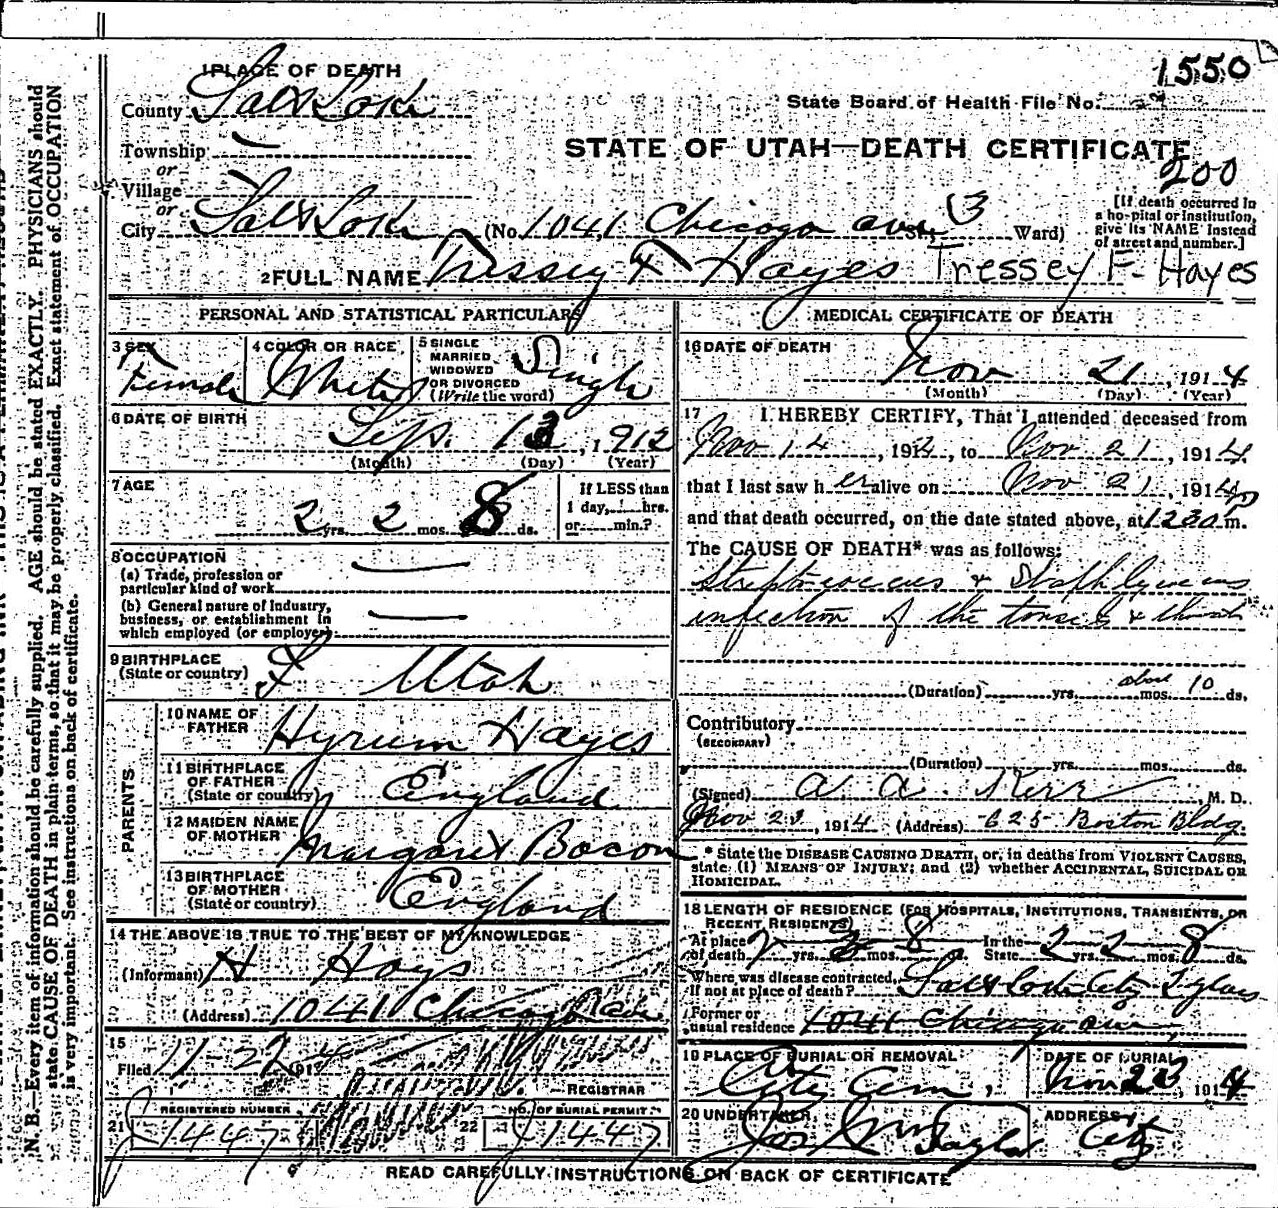 1550
1 PLACE OF DEATH
County Salt Lake
State Board of Health File No.
Township
STATE OF UTAH—DEATH CERTIFICATE
or
Village
200
or
City Salt Lake (No. 1041 Chicago ave St. 3 Ward)
[If death occurred in a hospital or institution, give its NAME instead of street and number.]
2 FULL NAME Tressey F Hayes Tressey F. Hayes
PERSONAL AND STATISTICAL PARTICULARS
3 SEX Female
4 COLOR OR RACE White
5 SINGLE MARRIED WIDOWED OR DIVORCED (Write the word) Single
6 DATE OF BIRTH Sep. 13, 1912
(Month) (Day) (Year)
7 AGE
2 yrs. 2 mos. 8 ds.
If LESS than 1 day, hrs. or min.?
8 OCCUPATION
(a) Trade, profession or particular kind of work
(b) General nature of industry, business, or establishment in which employed (or employer)
9 BIRTHPLACE
(State or country) Utah
PARENTS
10 NAME OF FATHER Hyrum Hayes
11 BIRTHPLACE OF FATHER (State or country) England
12 MAIDEN NAME OF MOTHER Margaret Bacon
13 BIRTHPLACE OF MOTHER (State or country) England
14 THE ABOVE IS TRUE TO THE BEST OF MY KNOWLEDGE
(Informant) H Hays
(Address) 1041 Chicago ave
15
Filed 11-22 1914
REGISTRAR
21 REGISTERED NUMBER J1447
22 NO. OF BURIAL PERMIT J1447
MEDICAL CERTIFICATE OF DEATH
16 DATE OF DEATH
Nov 21, 1914
(Month) (Day) (Year)
17 I HEREBY CERTIFY, That I attended deceased from
Nov 14, 1914, to Nov 21, 1914
that I last saw her alive on Nov 21, 1914
and that death occurred, on the date stated above, at 1230 p m.
The CAUSE OF DEATH* was as follows:
Streptococcus & Staphlycoccus
infection of the tonsils & throat
(Duration) yrs. mos. about 10 ds.
Contributory
(SECONDARY)
(Duration) yrs. mos. ds.
(Signed) A. A. Kerr, M. D.
Nov 23, 1914 (Address) 625 Boston Bldg.
* State the DISEASE CAUSING DEATH, or, in deaths from VIOLENT CAUSES, state (1) MEANS OF INJURY; and (2) whether ACCIDENTAL, SUICIDAL OR HOMICIDAL.
18 LENGTH OF RESIDENCE (FOR HOSPITALS, INSTITUTIONS, TRANSIENTS, OR RECENT RESIDENTS)
At place of death yrs. mos. 8 ds. In the State 2 yrs. 2 mos. 8 ds.
Where was disease contracted, if not at place of death? Salt Lake City
Former or usual residence 1041 Chicago ave
19 PLACE OF BURIAL OR REMOVAL City Cem,
DATE OF BURIAL Nov 23, 1914
20 UNDERTAKER Jos Wm Taylor
ADDRESS City
READ CAREFULLY INSTRUCTIONS ON BACK OF CERTIFICATE
N. B.—Every item of information should be carefully supplied. AGE should be stated EXACTLY. PHYSICIANS should
state CAUSE OF DEATH in plain terms, so that it may be properly classified. Exact statement of OCCUPATION
is very important. See instructions on back of certificate.